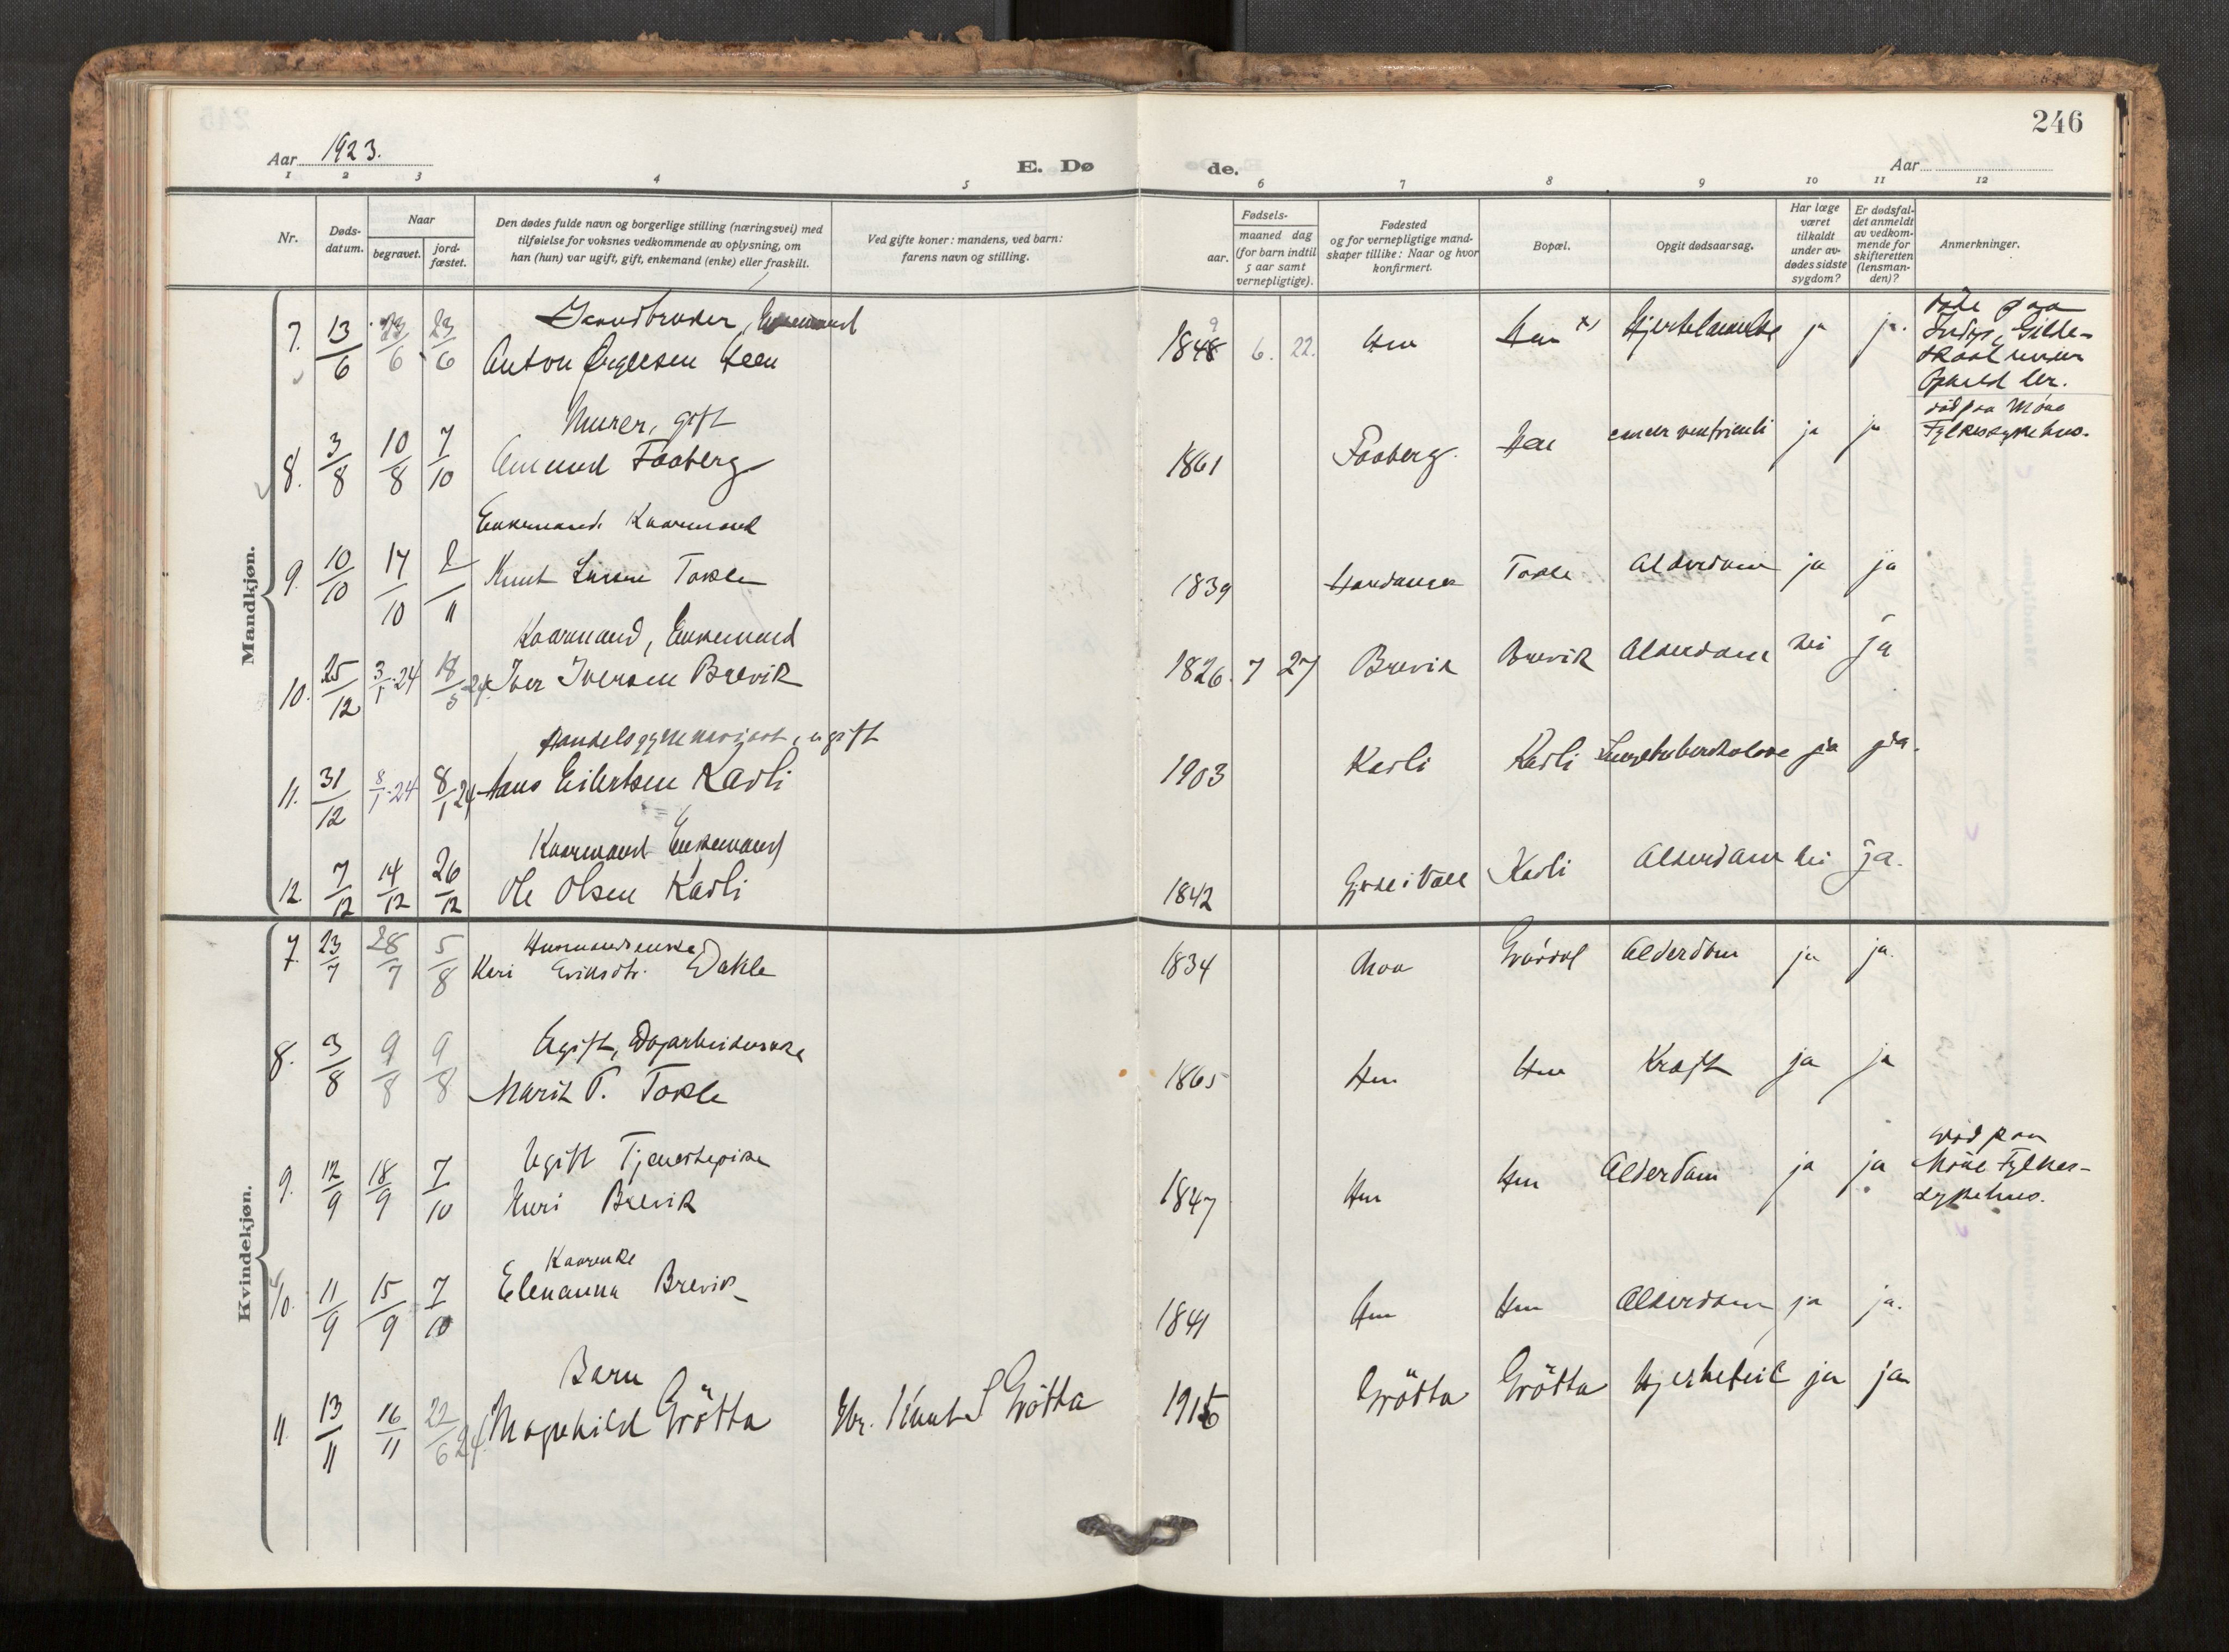 246
Aar 1923.
E. Dø de.
Aar
1 2 3 4 5 6 7 8 9 10 11 12
Nr.
Døds-
datum.
Naar
begravet.
jord-
fæstet.
Den dødes fulde navn og borgerlige stilling (næringsvei) med
tilføielse for voksnes vedkommende av oplysning, om
han (hun) var ugift, gift, enkemand (enke) eller fraskilt.
Ved gifte koner: mandens, ved barn:
farens navn og stilling.
Fødsels-
aar.
maaned dag
(for barn indtil
5 aar samt
vernepligtige).
Fødested
og for vernepligtige mand-
skaper tillike: Naar og hvor
konfirmert.
Bopæl.
Opgit dødsaarsag.
Har læge
været
tilkaldt
under av-
dødes sidste
sygdom?
Er dødsfal-
det anmeldt
av vedkom-
mende for
skifteretten
(lensman-
den)?
Anmerkninger.
Mandkjøn.
Gaardbruker, Enkemand
7. 13/6 23/6 23/6 Anton Heen 1848 9 6. 22. Hen Hen x) ja ja.
døde paa
Gille-
skaal under
Ophold der.
Murer, gift
8. 3/8 10/8 7/10 Amund Faaberg 1861 Faaberg. Hen cancer ventriculi ja ja
død paa Møre
Fylkessykehus.
Enkemand. Kaarmand
9. 10/10 14/10 Knut Larsen Tokle 1839 Hardanger Tokle Alderdom ja ja
Kaarmand, Enkemand
10. 25/12 3/1-24 18/5-24. Iver Iversen Brevik 1826 7 27 Brevik Brevik Alderdom nei ja
Handelsgymnasiast, ugift
11. 31/12 8/1-24 8/1 24 Hans Eilertsen Kavli 1903 Kavli Kavli Lungetuberkulose ja ja.
Kaarmand Enkemand
12. 7/12 14/12 26/12 Ole Olsen Kavli 1842 Kavli Alderdom nei ja.
Kvindekjøn.
Husmandsenke
7. 23/7 28/7 5/8 Kari Eriksdtr. Dahle 1834 Moa Grøvdal Alderdom ja ja.
Ugift, Dagarbeiderske
8. 3/8 9/8 9/8 Marit P. Tokle 1865 Hen Hen Kræft ja ja
Ugift Tjenestepike
9. 12/9 18/9 7/10 Guri Brevik 1847 Hen Hen Alderdom ja ja
død paa
Møre Fylkes-
sykehus.
Kaarenke
10. 11/9 15/9 7/10 Elenanna Brevik 1841 Hen Hen Alderdom ja ja.
Barn
11. 13/11 16/11 22/6 24. Magnhild Grötta Gbr. Knut S Grötta 1915 Grötta Grötta Hjertefeil ja ja